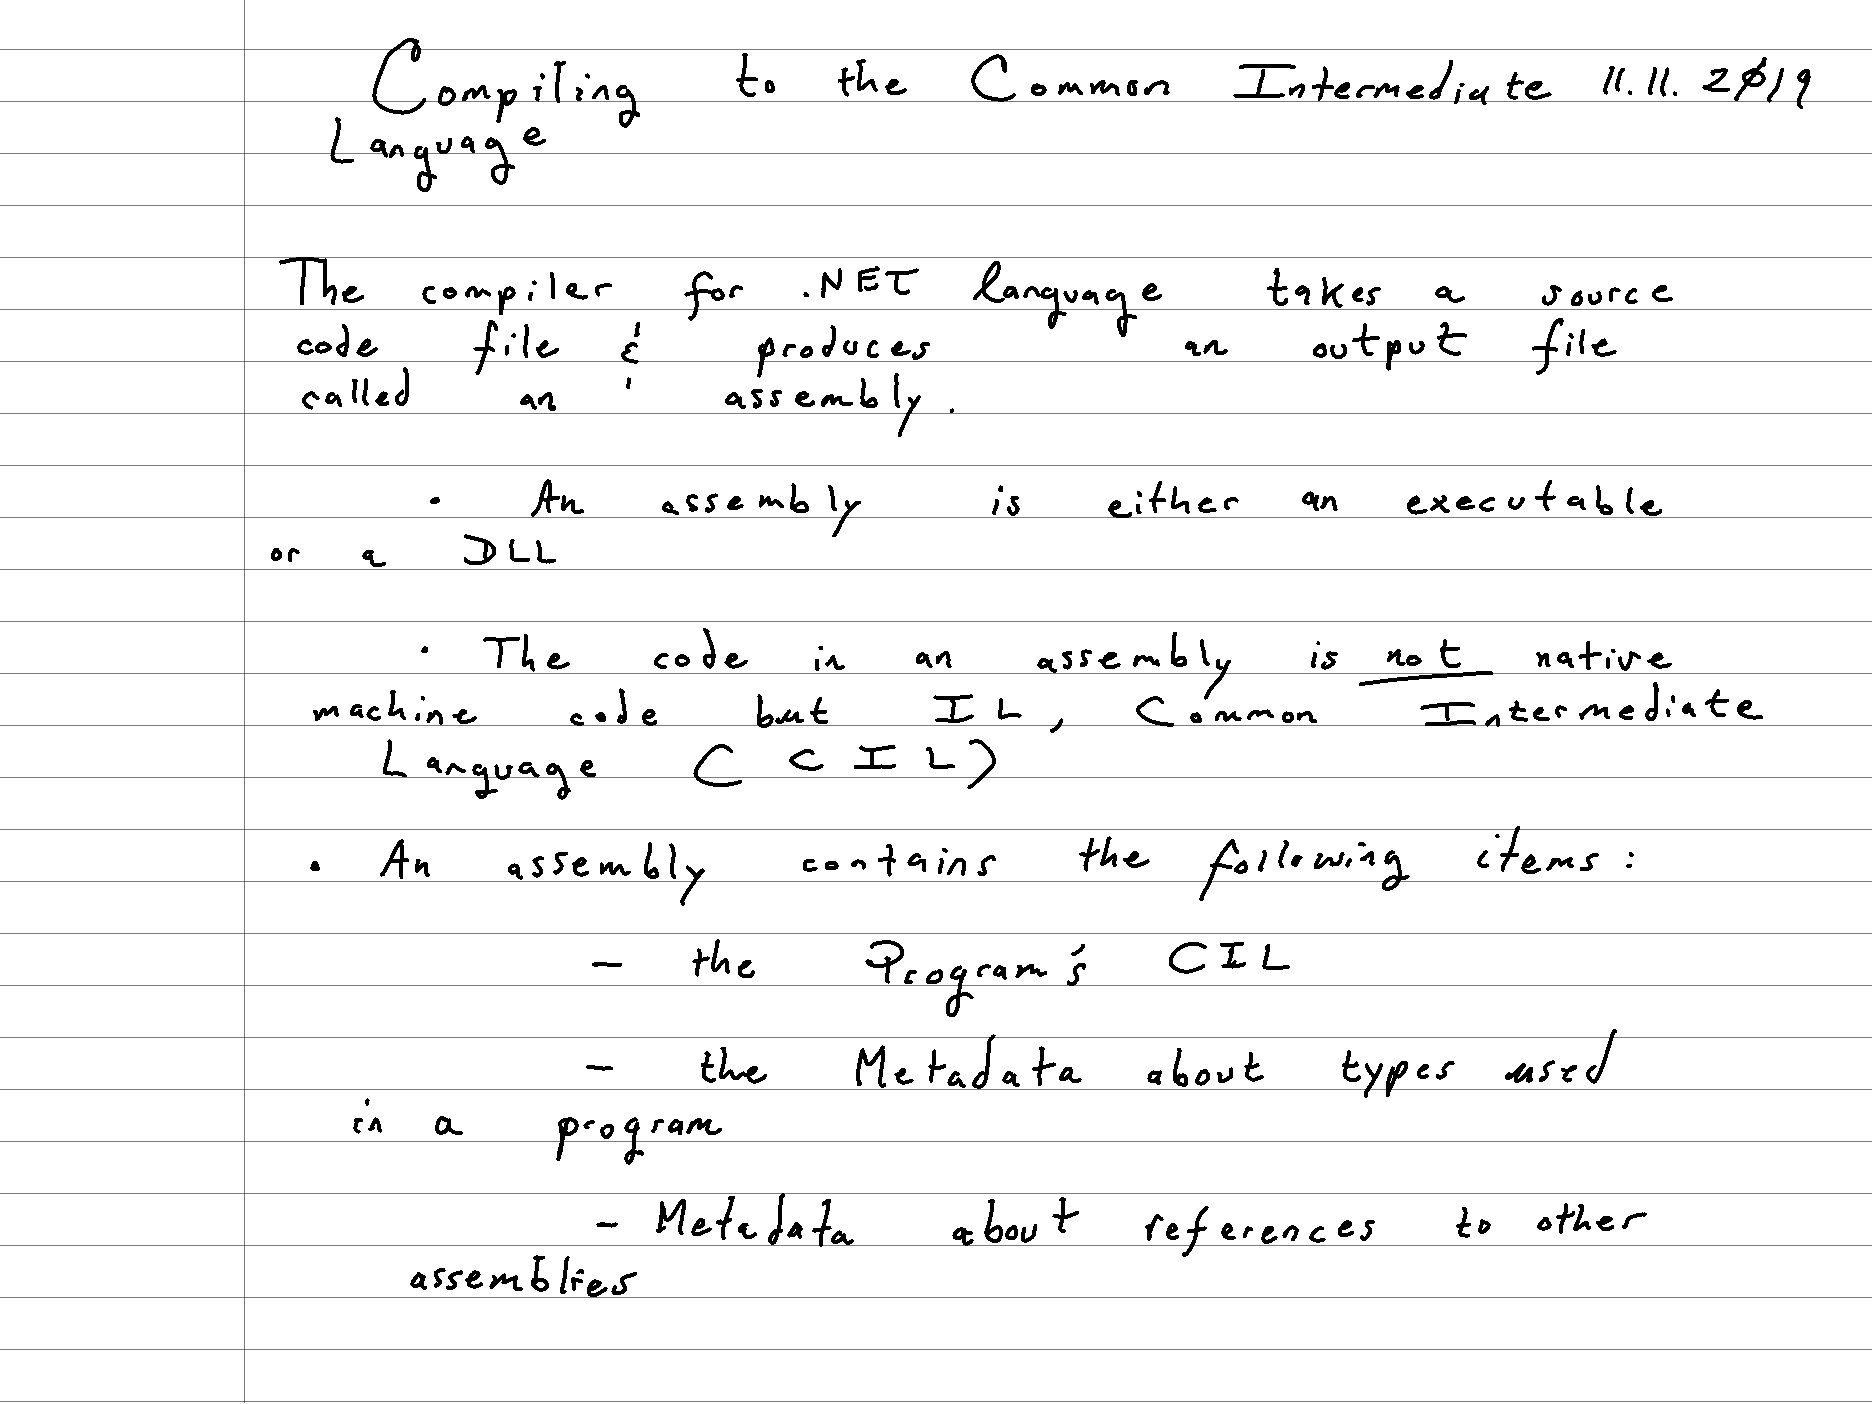 Compiling to the Common Intermediate 11.11.2019
Language
The compiler for .NET language takes a source
code file & produces an output file
called an assembly.
• An assembly is either an executable
or a DLL
• The code in an assembly is not native
machine code but IL, Common Intermediate
Language (CIL)
• An assembly contains the following items:
- the Program's CIL
- the Metadata about types used
in a program
- Metadata about references to other
assemblies